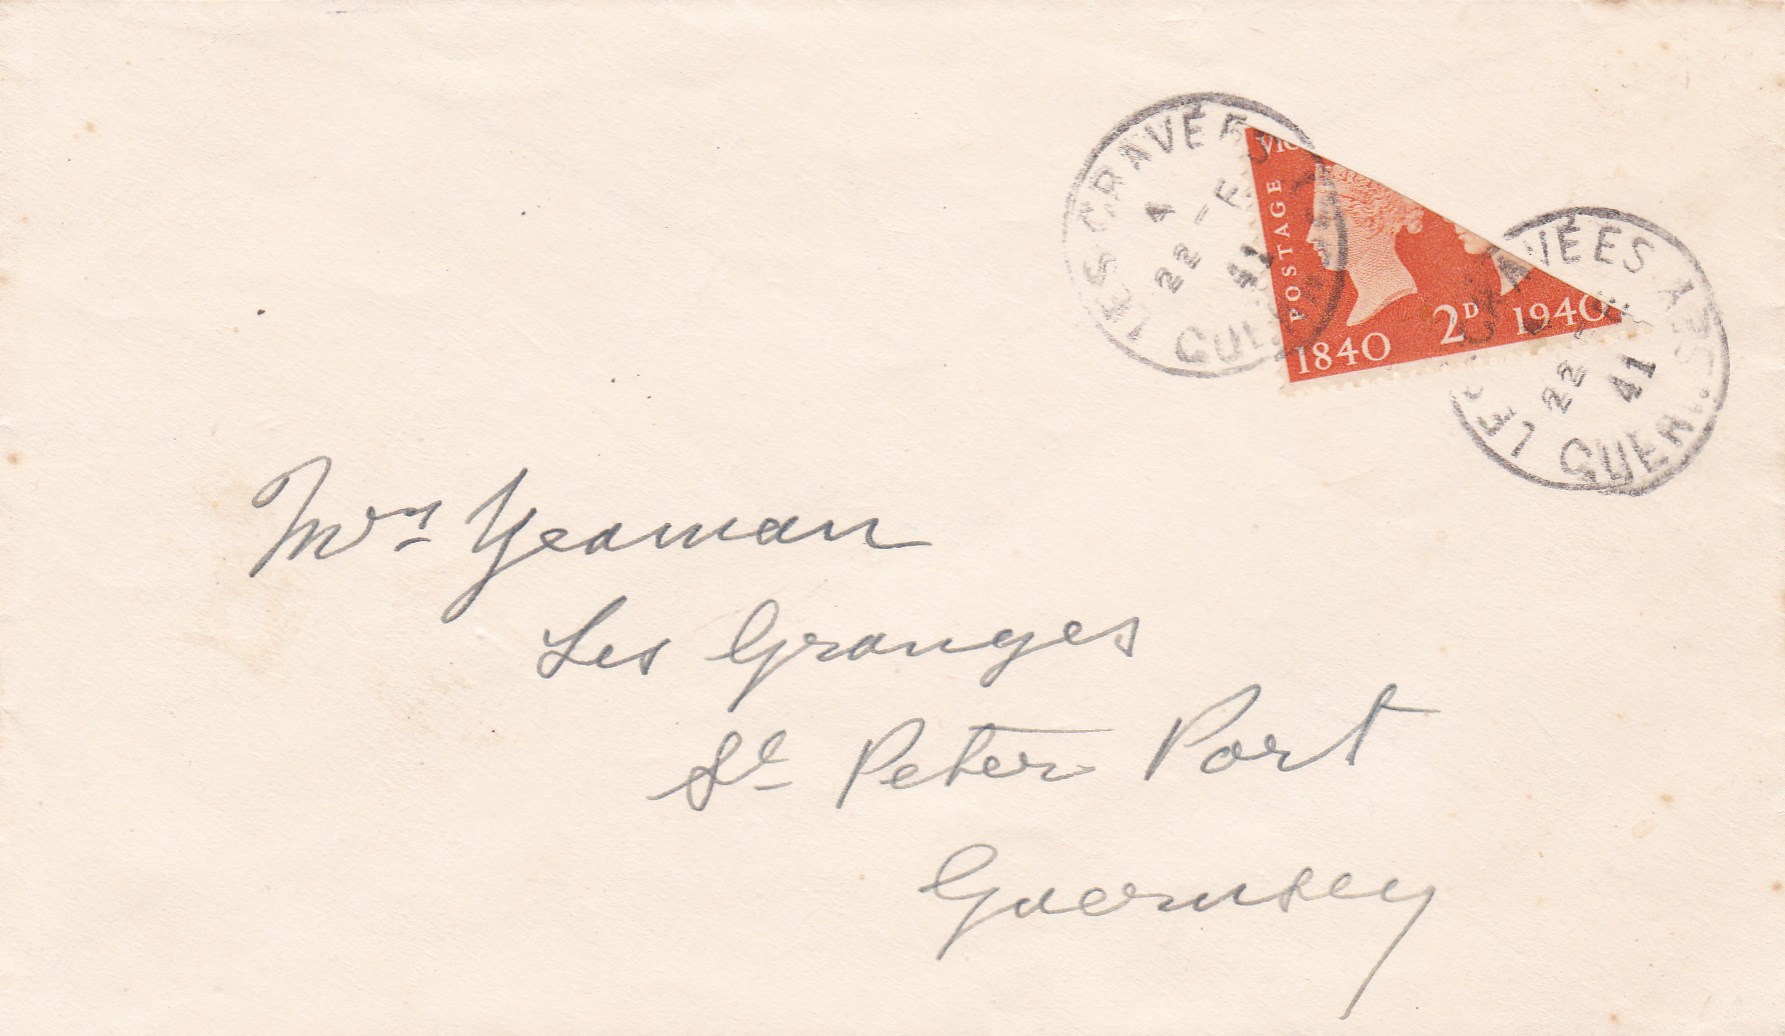 LES GRAVÉES
A
22 - F
41
GUERNSEY
VIC
POSTAGE
1840 2D 1940
LES GRAVÉES
22
41
GUERNSEY
Mrs Yeaman
Les Granges
St Peter Port
Guernsey